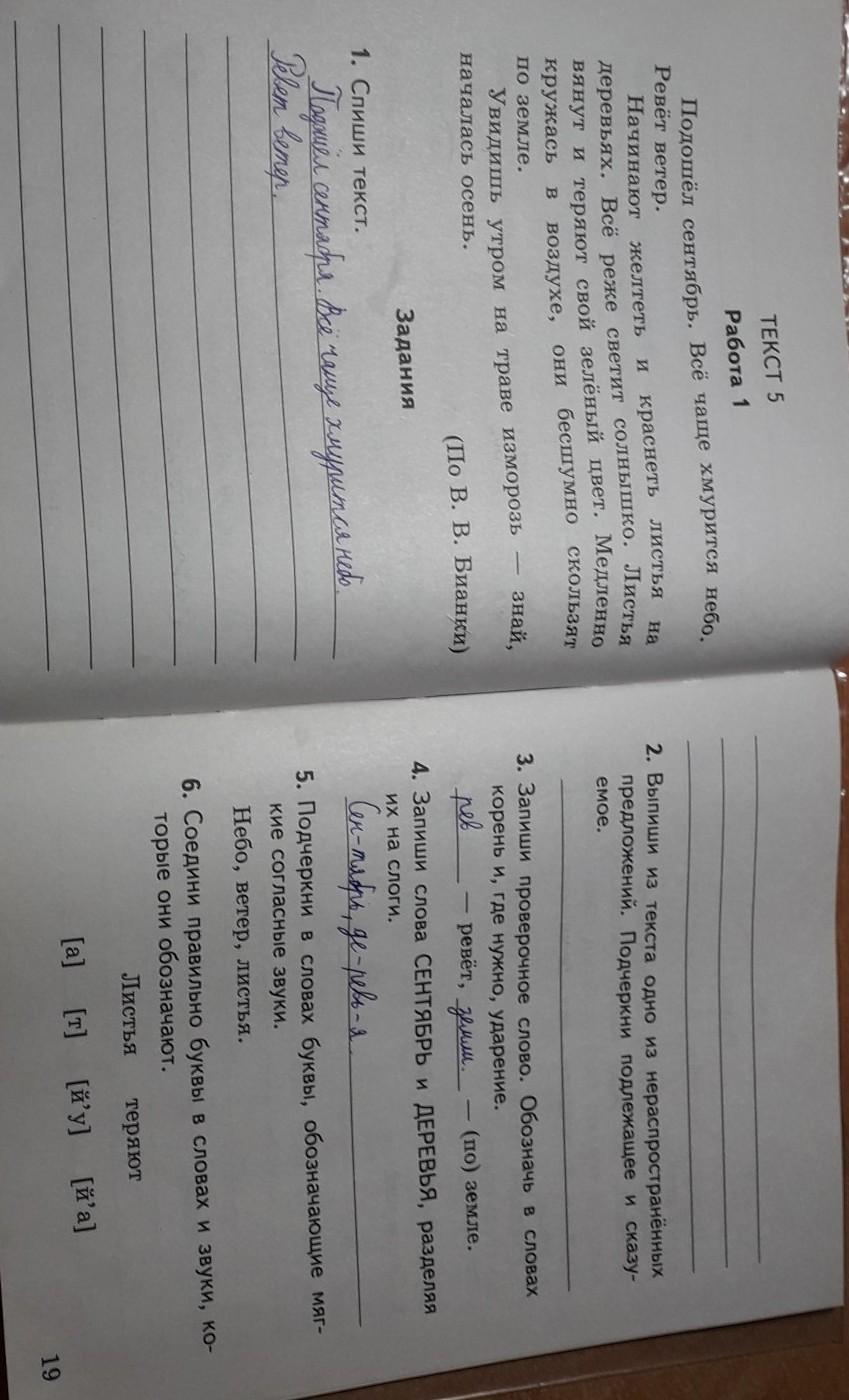 ТЕКСТ 5
Работа 1
Подошёл сентябрь. Всё чаще хмурится небо.
Ревёт ветер.
Начинают желтеть и краснеть листья на
деревьях. Всё реже светит солнышко. Листья
вянут и теряют свой зелёный цвет. Медленно
кружась в воздухе, они бесшумно скользят
по земле.
Увидишь утром на траве изморозь — знай,
началась осень.
(По В. В. Бианки)
Задания
1. Спиши текст.
Подошёл сентябрь. Всё чаще хмурится небо.
Ревет ветер.
2. Выпиши из текста одно из нераспространённых
предложений. Подчеркни подлежащее и сказу-
емое.
3. Запиши проверочное слово. Обозначь в словах
корень и, где нужно, ударение.
рев — ревёт, земли. — (по) земле.
4. Запиши слова СЕНТЯБРЬ и ДЕРЕВЬЯ, разделяя
их на слоги.
Сен-тябрь, де-ревь-я.
5. Подчеркни в словах буквы, обозначающие мяг-
кие согласные звуки.
Небо, ветер, листья.
6. Соедини правильно буквы в словах и звуки, ко-
торые они обозначают.
Листья теряют
[а] [т] [й’у] [й’а]
19